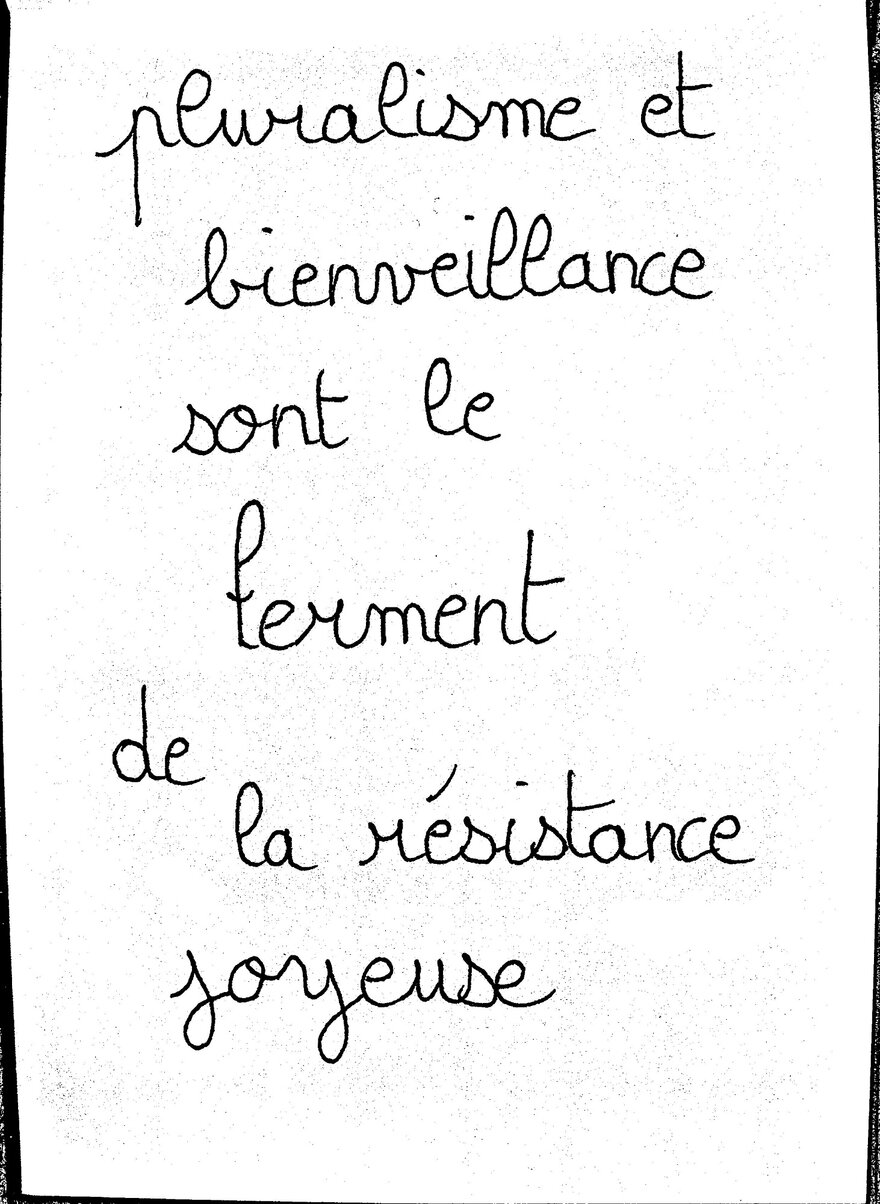 pluralisme et
bienveillance
sont le
ferment
de
la résistance
joyeuse